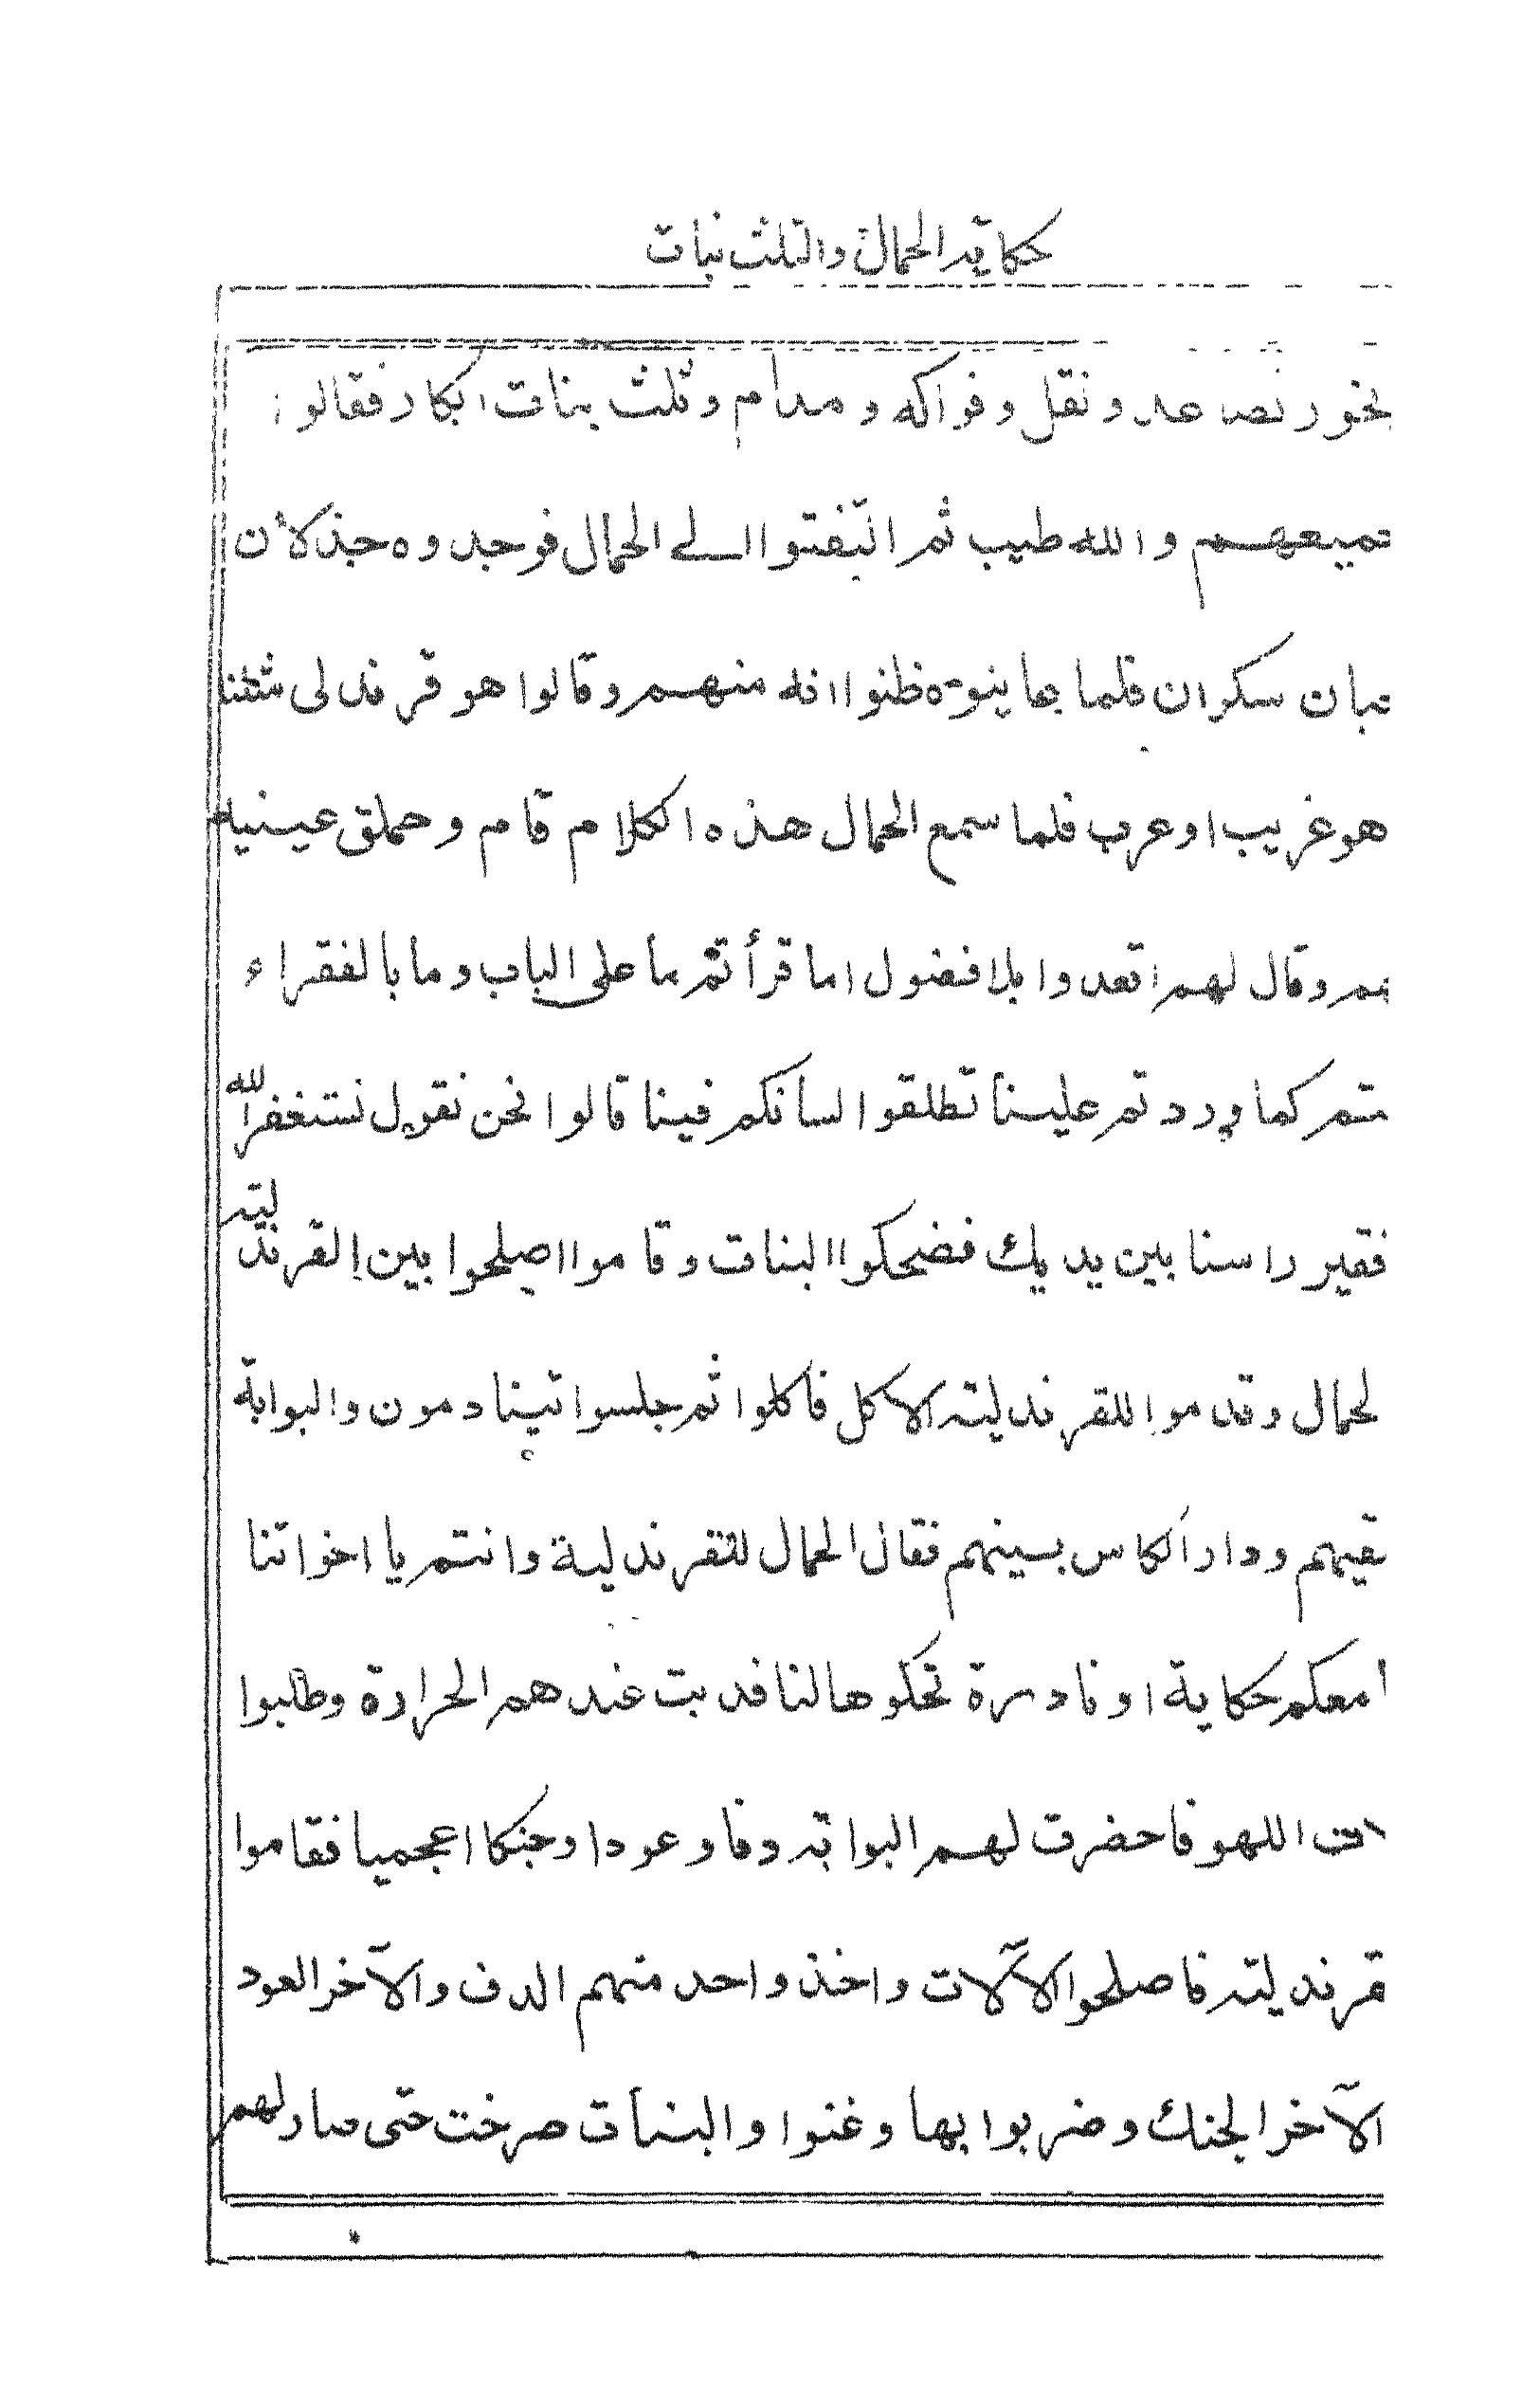 حكاية الحمال والثلث بنات
بخور تصاعد ونقل وفواكه ومدام وثلث بنات ابكار فقالوا
جميعهم والله طيب ثم التفتوا الى الحمال فوجدوه جذلان
تبان سكران فلما عاينوه ظنوا انه منهم وقالوا هو قرندلى مثلنا
هو غريب او عرب فلما سمع الحمال هذه الكلام قام وحملق عينيه
هم وقال لهم اقعدوا بلا فضول اما قرأتم ما على الباب وما بالفقراء
نتم كما وردتم علينا تطلقوا لسانكم فينا قالوا نحن نقول نستغفر الله
فقير راسنا بين يديك فضحكوا البنات وقاموا اصلحوا بين القرندلية
لحمال وقدموا للقرندلية الاكل فاكلوا ثم جلسوا يتنادمون والبوابة
تقيهم ودار الكاس بينهم فقال الحمال للقرندلية وانتم يا اخواتنا
ا معكم حكاية او نادرة تحكوها لنا فدبت عندهم الحرارة وطلبوا
لات اللهو فاحضرت لهم البوابة دفا وعودا وجنكا اعجميا فقاموا
قرندلية فاصلحوا الآلات واخذ واحد منهم الدف والآخر العود
الآخر الجنك وضربوا بها وغنوا والبنات صرخت حتى صار لهم